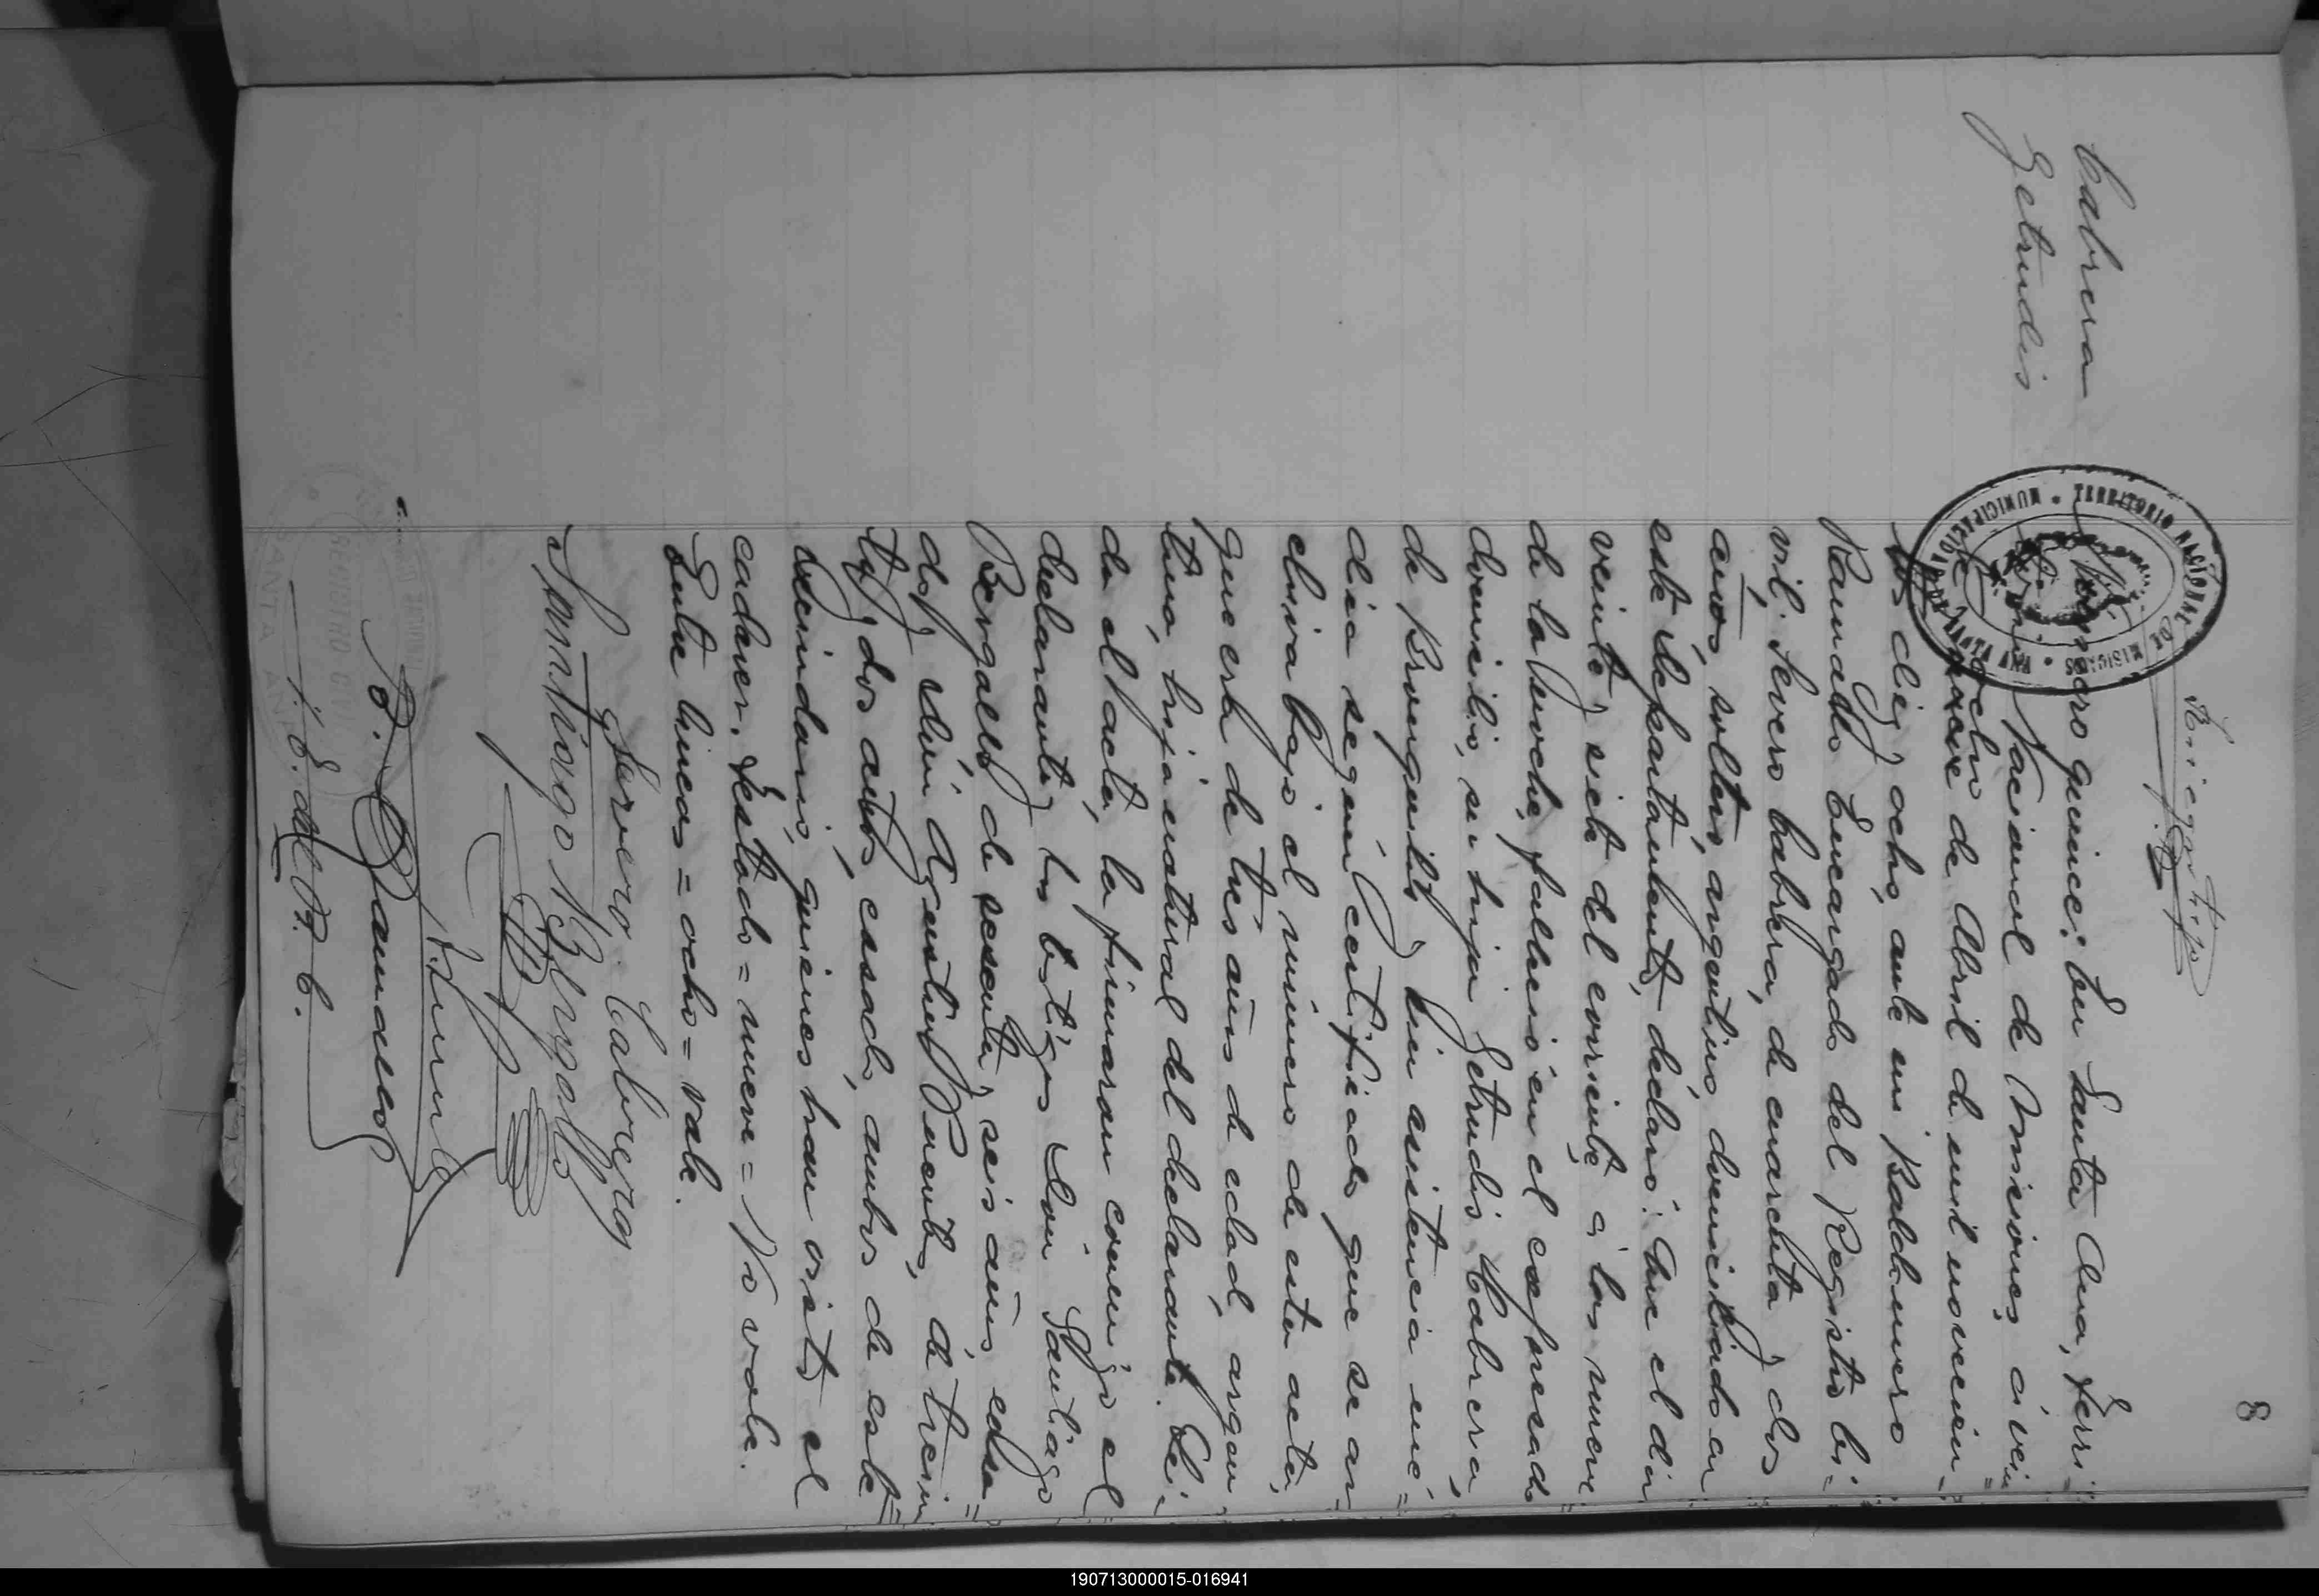 8
Cabrera
Getrudis
Número quince: En Santa Ana, Terri=
torio Nacional de Misiones, á vein=
ocho
tinueve de Abril de mil novecien=
tos diez y ocho, ante mi Baldomero
Raunddo Encargado del Registro Ci=
vil; Severo Cabrera, de cuarenta y dos
años, soltero, argentino, domiciliado en
este departamento, declaró: Que el dia
veinte y siete del corriente á las nueve
de la noche, falleció en el expresado
domicilio, su hija Getrudis Cabrera,
de Bronquitis y sin asistencia mé=
dica según certificado que se ar=
chiva bajo el número de esta acta;
que era de tres años de edad, argen=
tina, hija natural del declarante. Lei=
da el acta, la firmaron conmigo el
declarante y los testigos Don Santiago
Bergallo, de sesenta y seis años, casa=
do, y don Agustin Puente, de trein=
ta y dos años, casado, ambos de este
vecindario, quienes han visto el
cadaver. Testado = nueve = No vale.
Entre lineas = ocho = vale.
Severo Cabrera
Santiago Bergallo
E. del R. C.
REGISTRO CIVIL
SANTA ANA
190713000015-016941